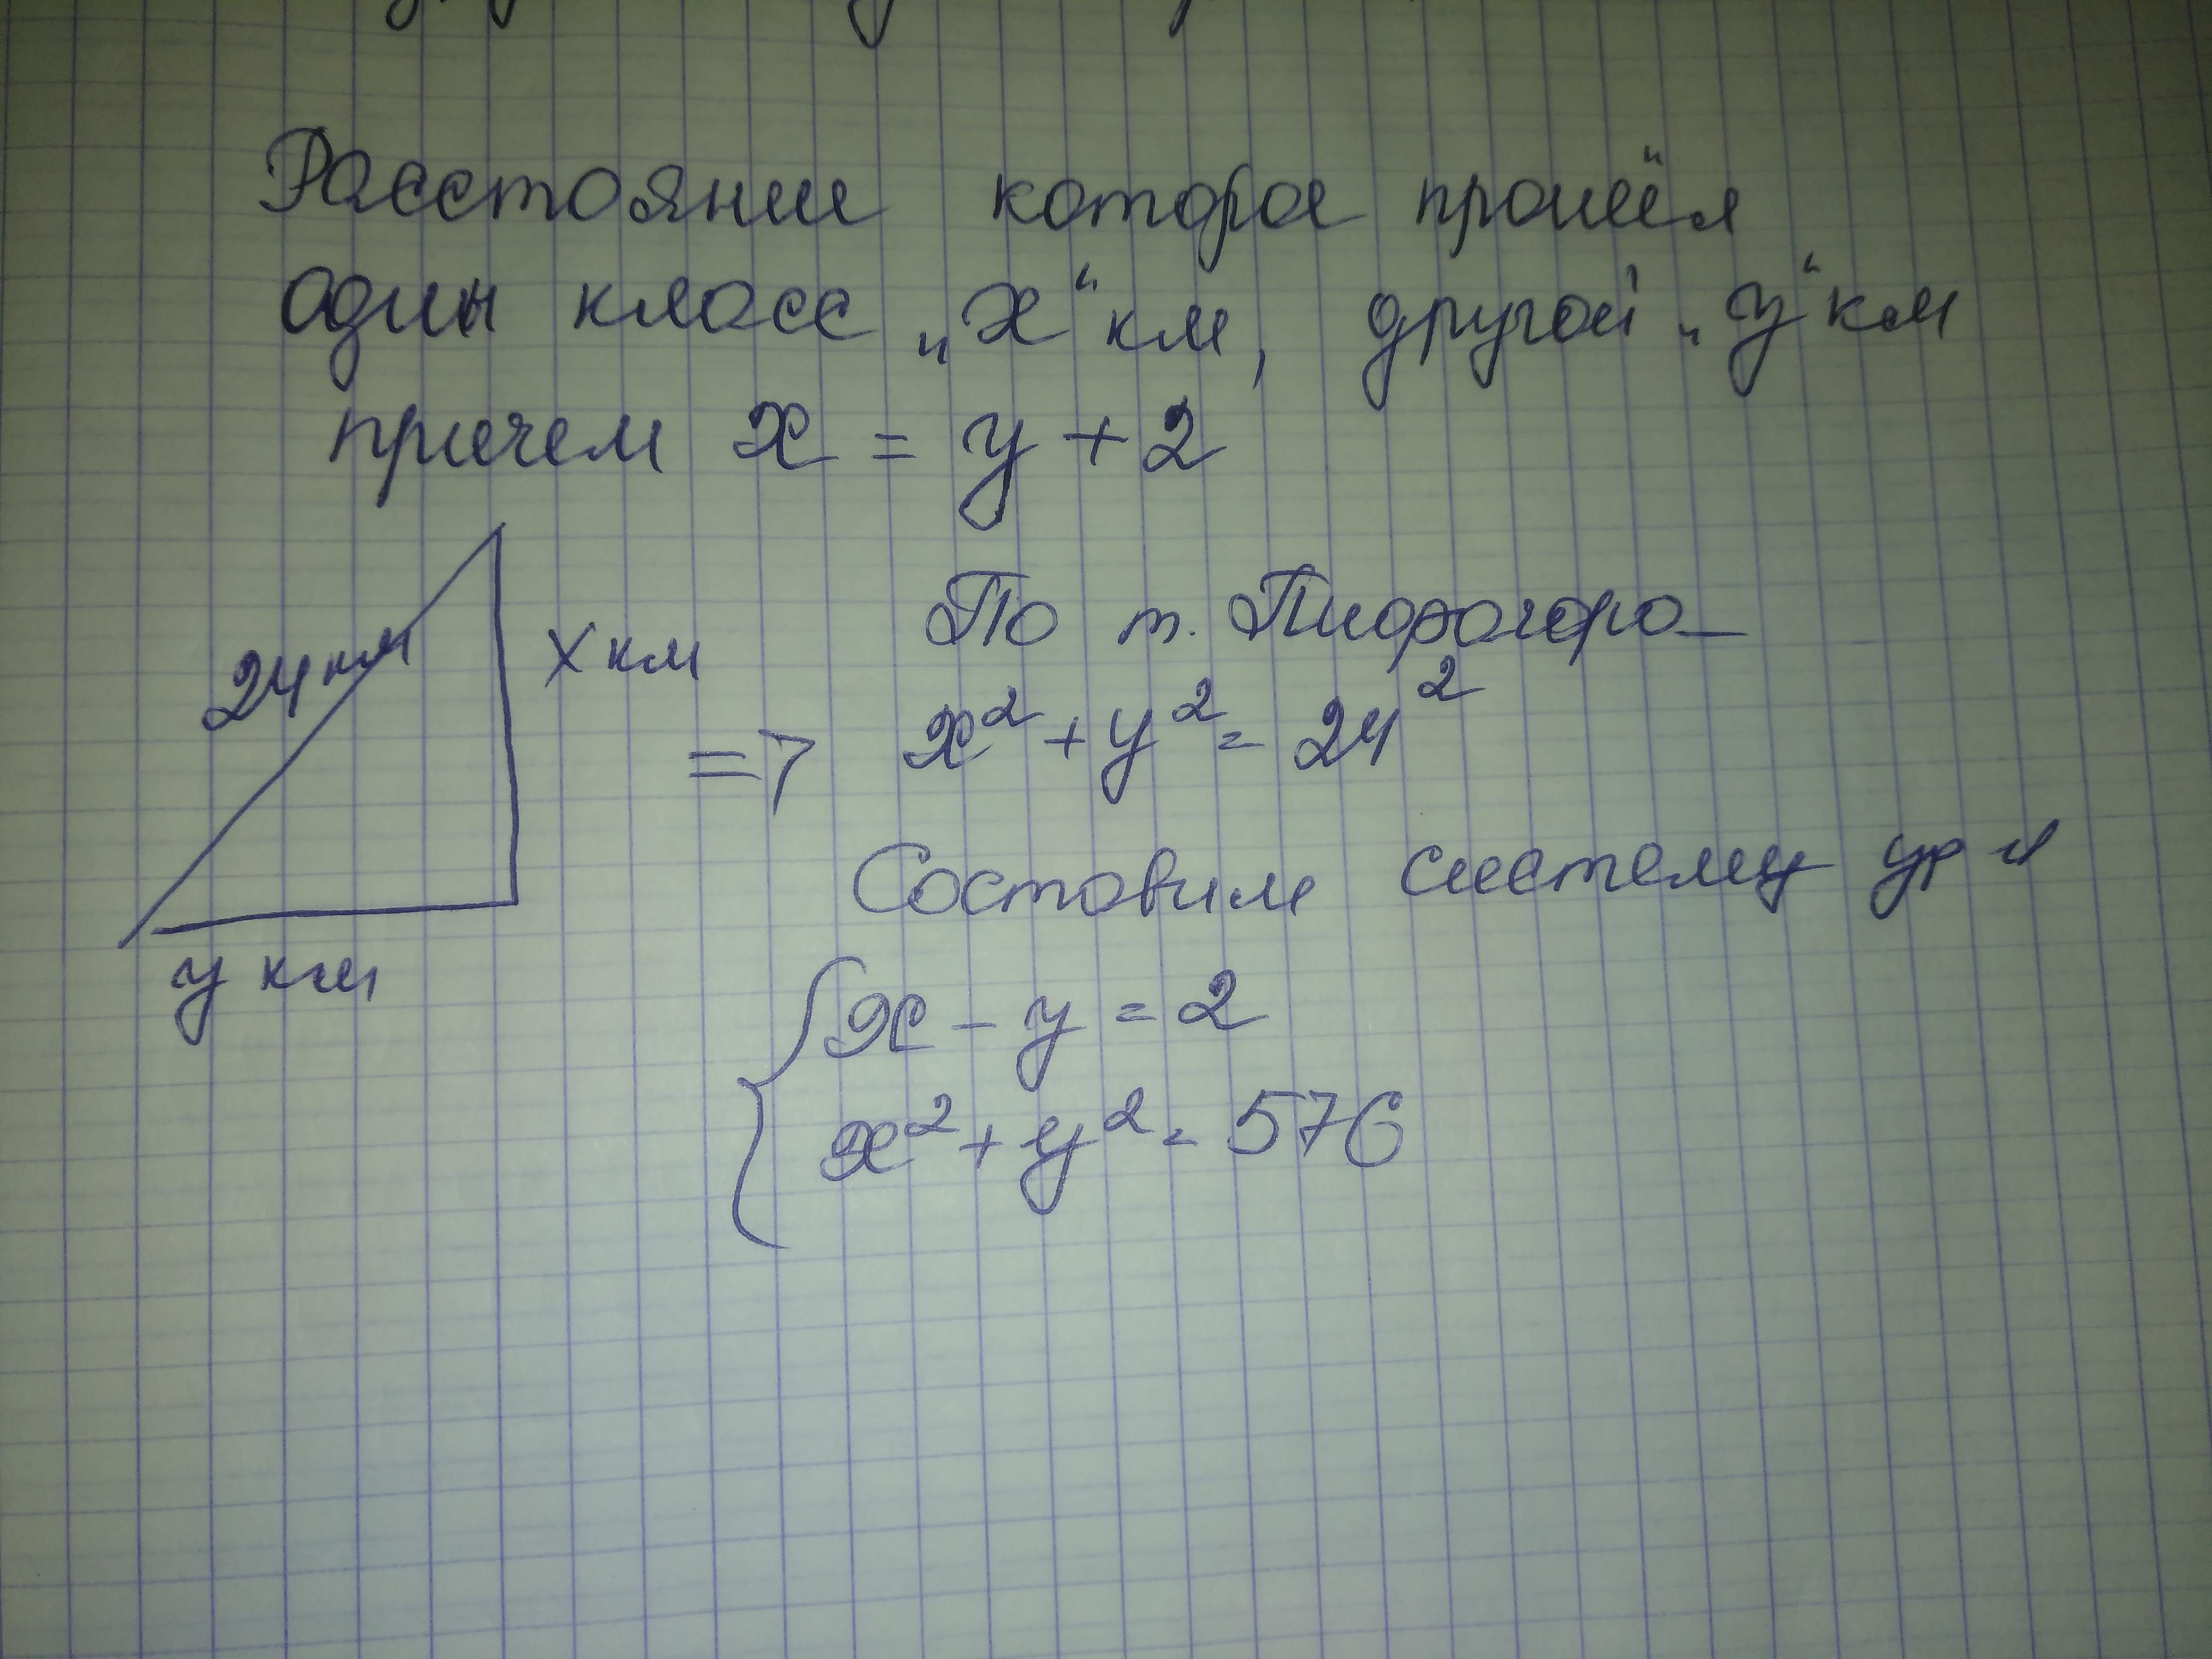 Расстояние которое прошёл
один класс „x“ км, другой „y“ км
причем x = y + 2
24 км
x км
По т. Пифагора
=> x² + y² = 24²
Составим систему ур-й
y км
{ x - y = 2
x² + y² = 576